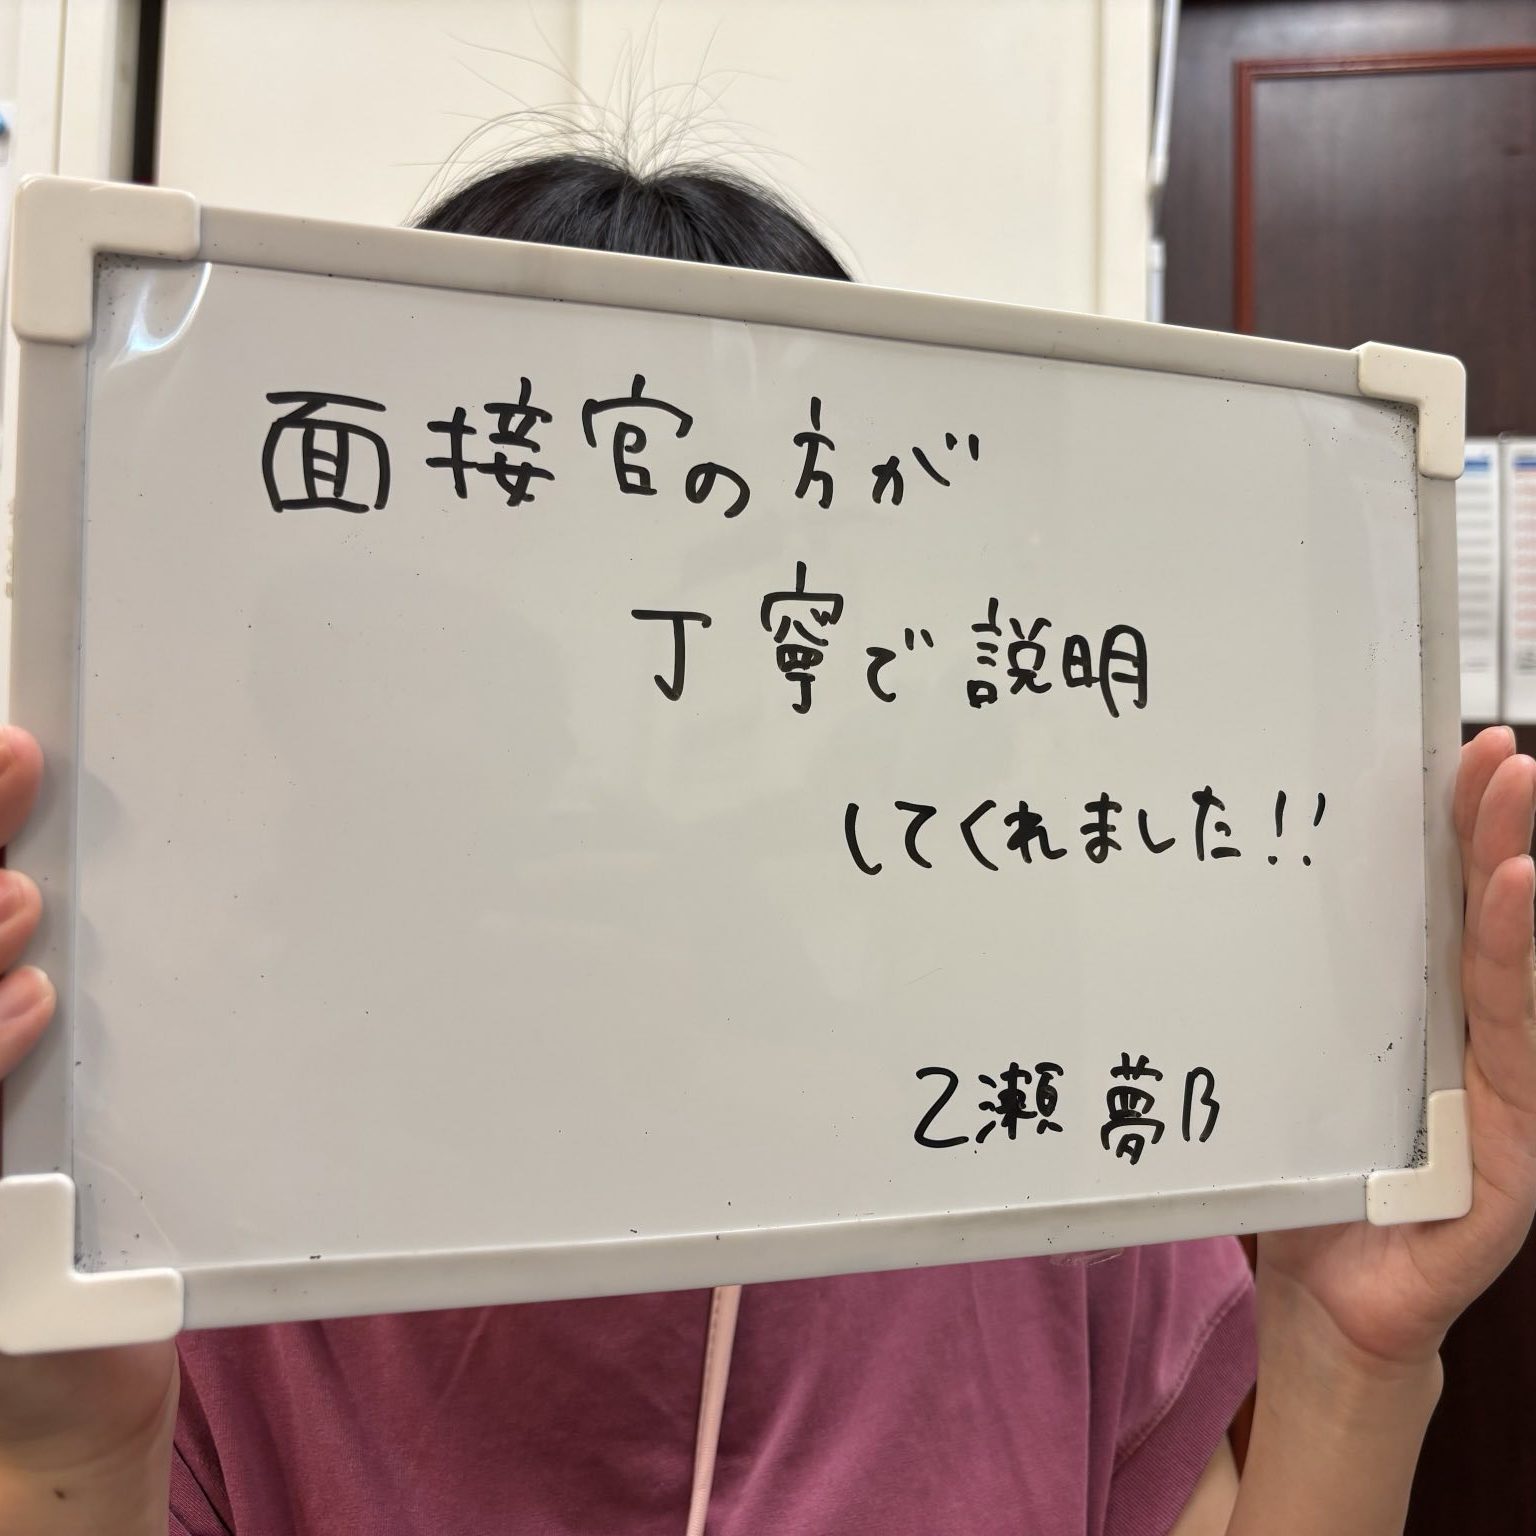 面接官の方が
丁寧で説明
してくれました!!
乙瀬 夢乃